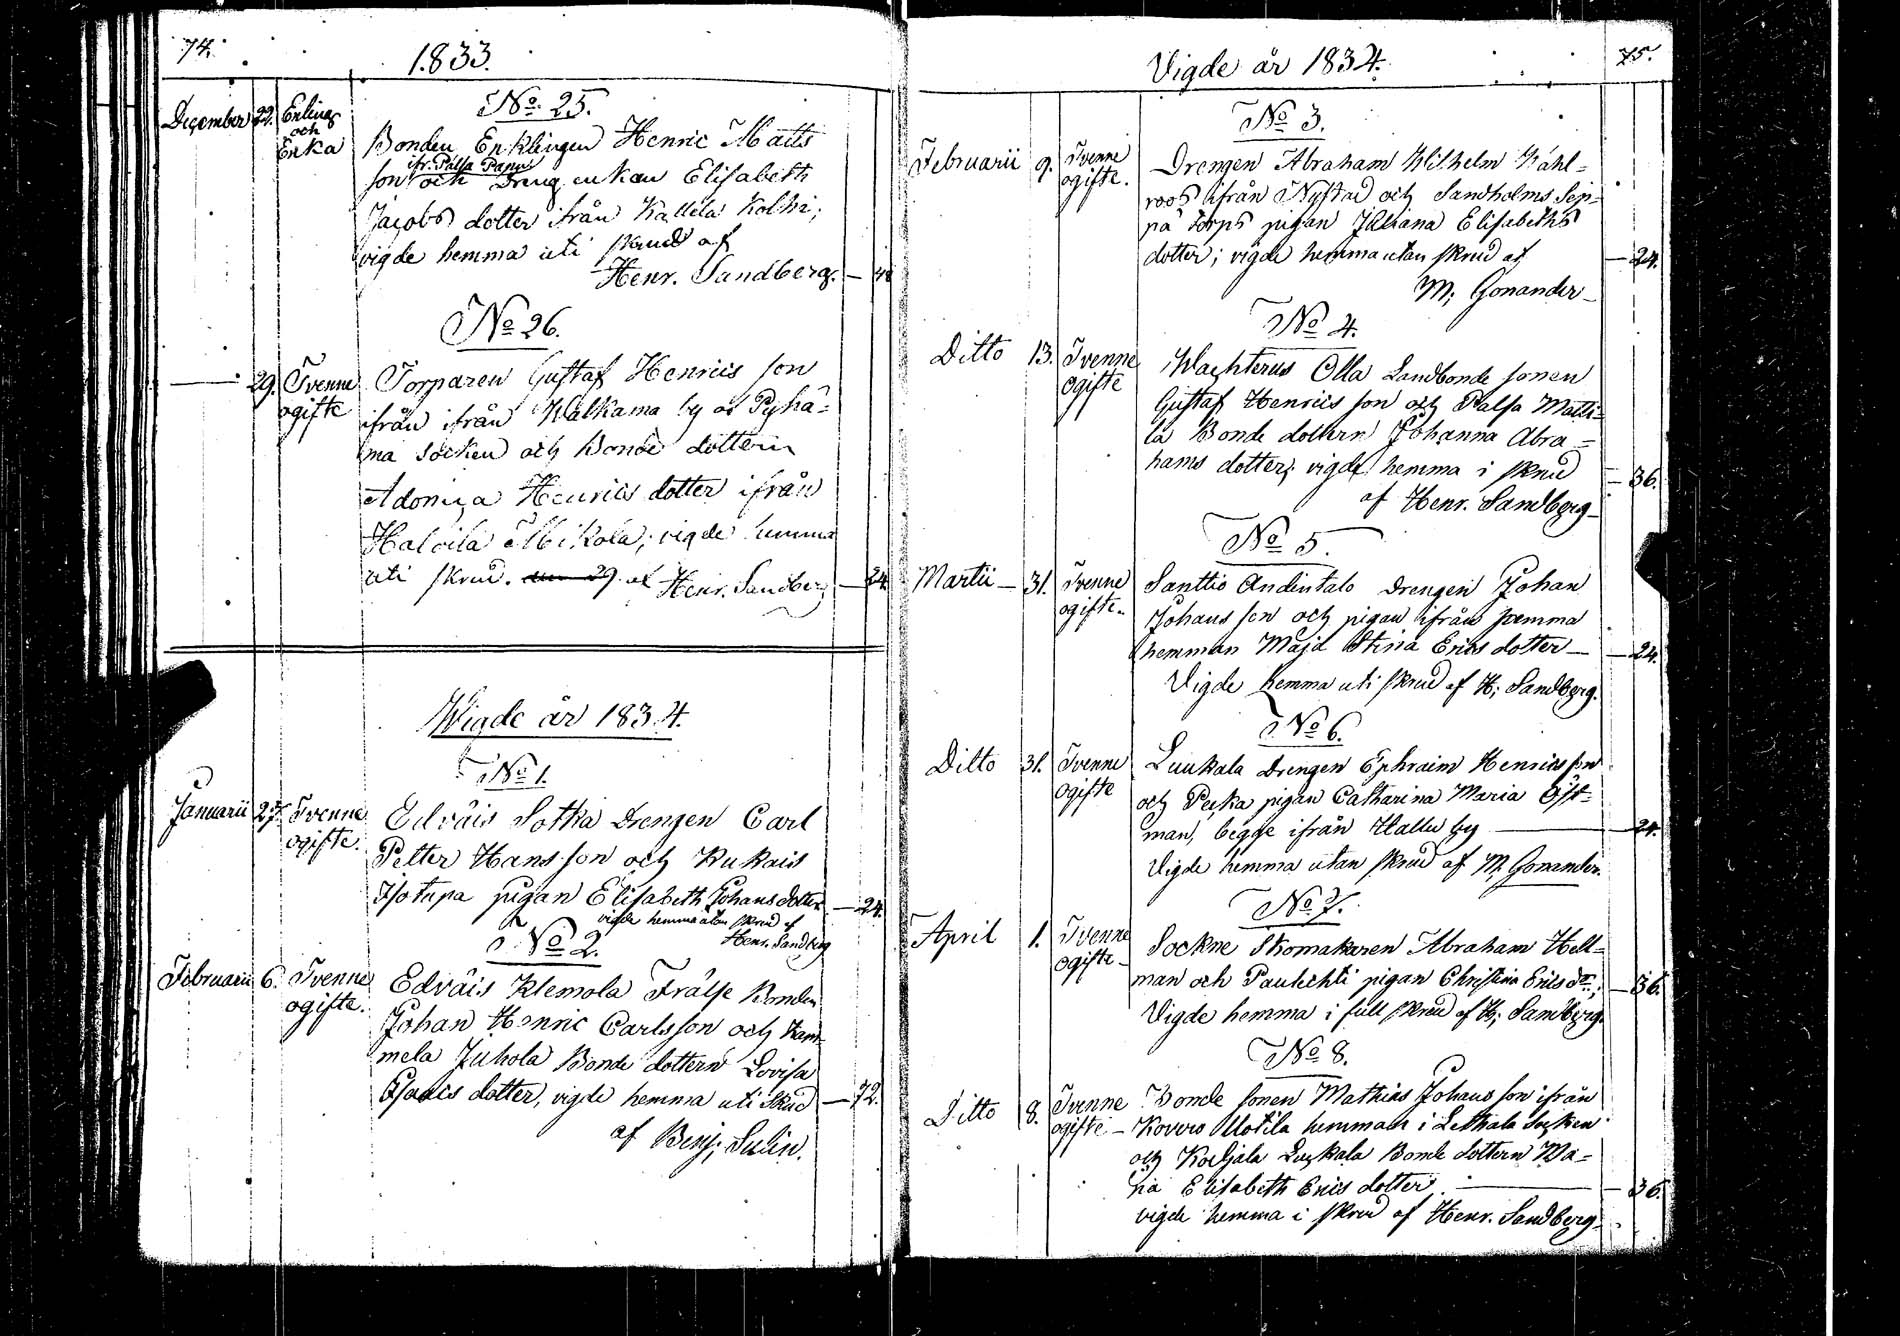 74.
1833.
December 22. Enkling och Enka
No 25.
Bonden Enklingen Henric Matts
ifr. Palsa Pannu
son och Dreng enkan Elisabeth
Jacobs dotter ifrån Kallela Kolhi;
vigde hemma uti skrud af
Henr. Sandberg. — 48
No 26.
— 29. Tvenne ogifte
Torparen Gustaf Henrics son
ifrån ifrån Walkama by af Pyhä-
ma Socken och Bonde dottern
Adomia Henrics dotter ifrån
Halvila Mikola; vigde hemma
uti skrud. af Henr. Sandberg — 24.
Wigde år 1834.
No 1.
Januarii 27. Tvenne ogifte.
Edväis Sotka Drengen Carl
Petter Hans son och Kukais
Isotupa pigan Elisabeth Johans dotter — 24.
vigde hemma utan skrud af
Henr. Sandberg
No 2.
Februarii 6. Tvenne ogifte.
Edväis Klemola Frälse Bonden
Johan Henric Carlsson och Kam-
mela Juhola Bonde dottern Lovisa
Isaacs dotter, vigde hemma uti Skrud — 72.
af Benj; Sulin.
75.
Vigde år 1834.
No 3.
Februarii 9. Tvenne ogifte.
Drengen Abraham Wilhelm Wahl-
roos ifrån Nystad och Sandholms Sep-
pä torps pigan Juliana Elisabeths
dotter; vigde hemma utan skrud af — 24.
M; Gonander
No 4.
Ditto 13. Tvenne ogifte
Wachterus Olla Landbonde sonen
Gustaf Henrics son och Palsa Matti-
la Bonde dottern Johanna Abra-
hams dotter; vigde hemma i skrud — 36.
af Henr. Sandberg
No 5.
Martii — 31. Tvenne ogifte.
Santtio Andintalo Drengen Johan
Johans son och pigan ifrån samma
hemman Maja Stina Erics dotter — 24.
Vigde hemma uti skrud af H; Sandberg.
No 6.
Ditto 31. Tvenne ogifte
Luukala Drengen Ephraim Henrics son
och Pecka pigan Catharina Maria Öst-
man, begge ifrån Hallu by — 24.
Vigde hemma utan skrud af M; Gonander.
No 7.
April 1. Tvenne ogifte
Sockne Skomakaren Abraham Hell-
man och Paulchti pigan Christina Erics dr; — 36.
Vigde hemma i full skrud af H; Sandberg.
No 8.
Ditto 8. Tvenne ogifte
Bonde sonen Mathias Johans son ifrån
Kovero Uotila hemman i Lethala Socken
och Kodjala Luckala Bonde dottern Ma-
ria Elisabeth Erics dotter — 36.
vigde hemma i skrud af Henr. Sandberg